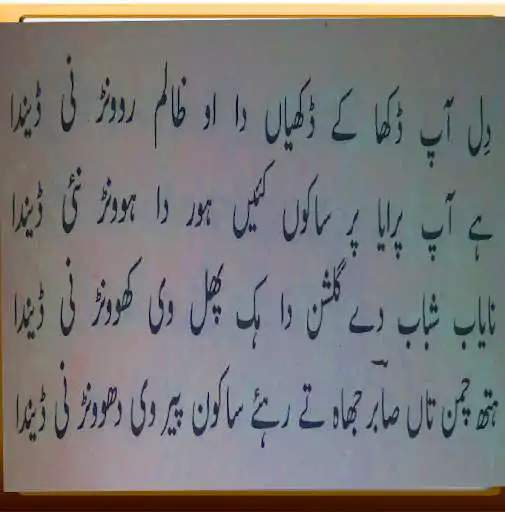 دِل آپ ڈکھا کے ڈکھیاں دا او ظالم روونڑ نی ڈیندا
ہے آپ پرایا پر ساکوں کئیں ہور دا ہوونڑ نئی ڈیندا
نایاب شباب دے گلشن دا ہک پھل وی کھوونڑ نی ڈیندا
ہتھ چمن تاں صابرؔ جھاہ تے رہئے ساکون پیر وی دھوونڑ نی ڈیندا